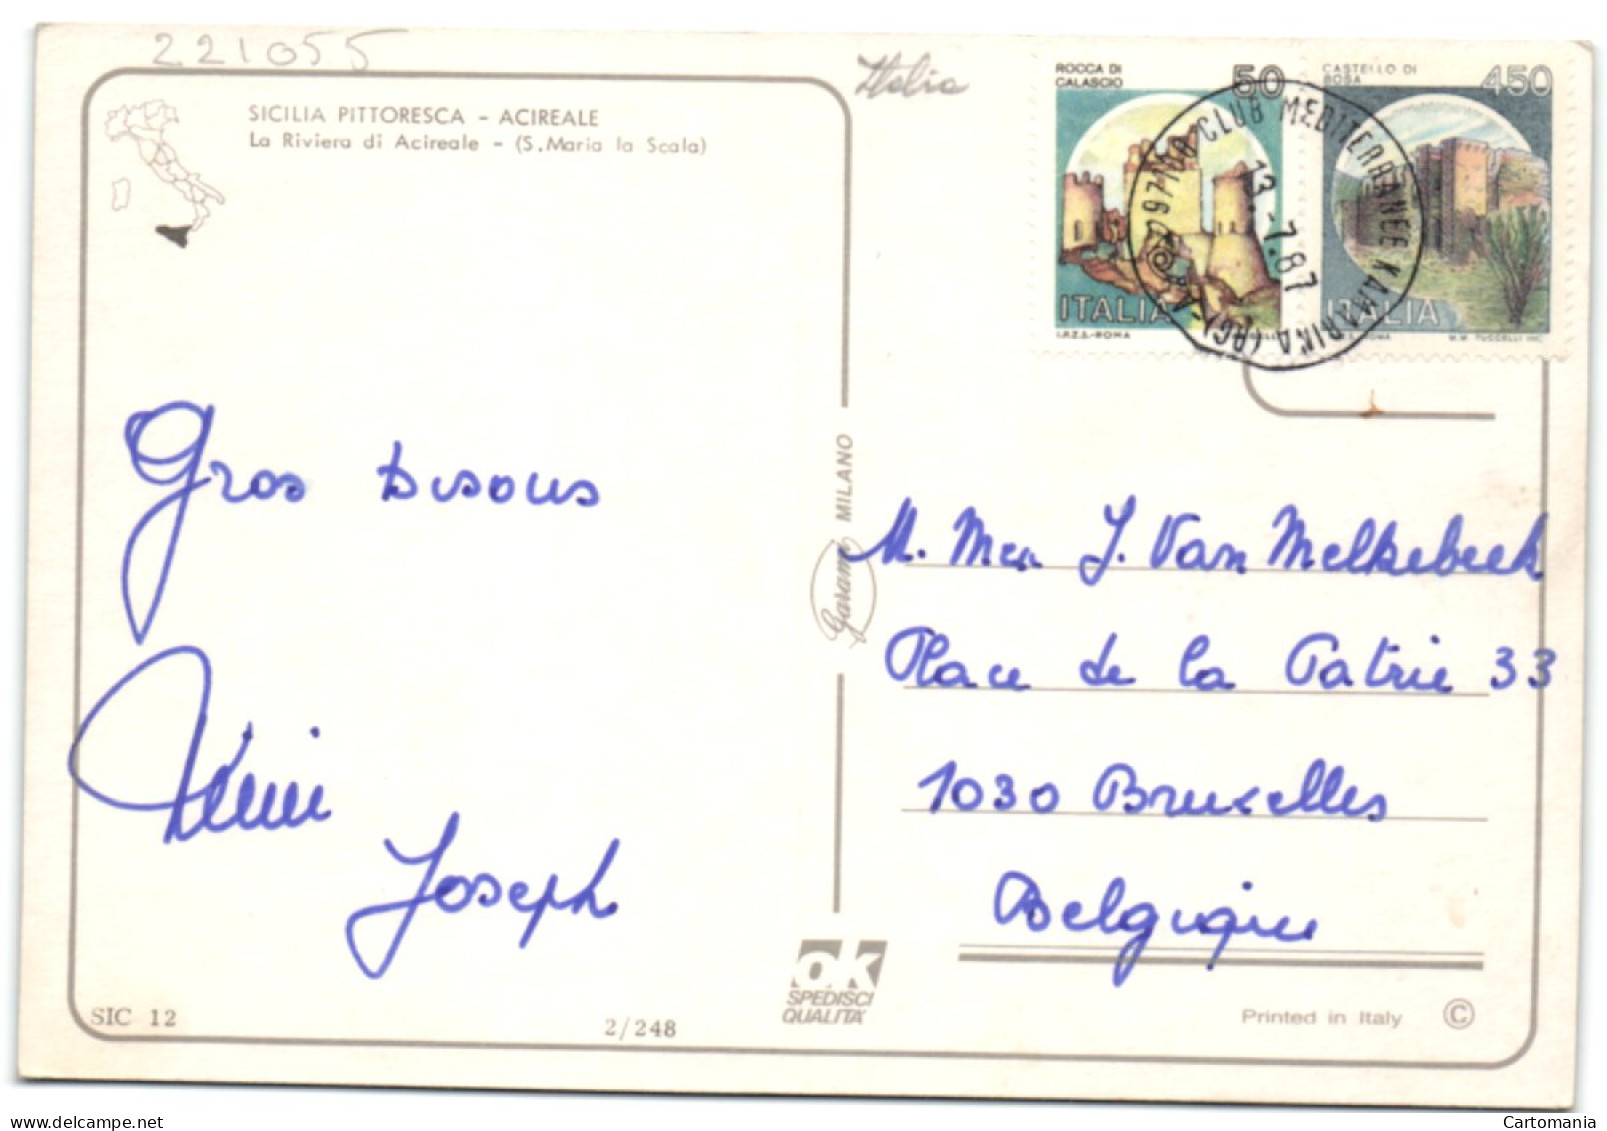 221055
Italia
SICILIA PITTORESCA - ACIREALE
La Riviera di Acireale - (S.Maria la Scala)
ROCCA DI CALASCIO
50
ITALIA
I.P.Z.S.-ROMA
CASTELLO DI BOSA
450
ITALIA
M.M. TUCCELLI INC.
CLUB MEDITERRANEE KAMARINA (RG)
13.-7.87
Gros bisous
Joseph
Garami MILANO
M. Mme J. Van Melkebeek
Place de la Patrie 33
1030 Bruxelles
Belgique
ok
SPEDISCI
QUALITA'
SIC 12
2/248
Printed in Italy ©
www.delcampe.net
Cartomania